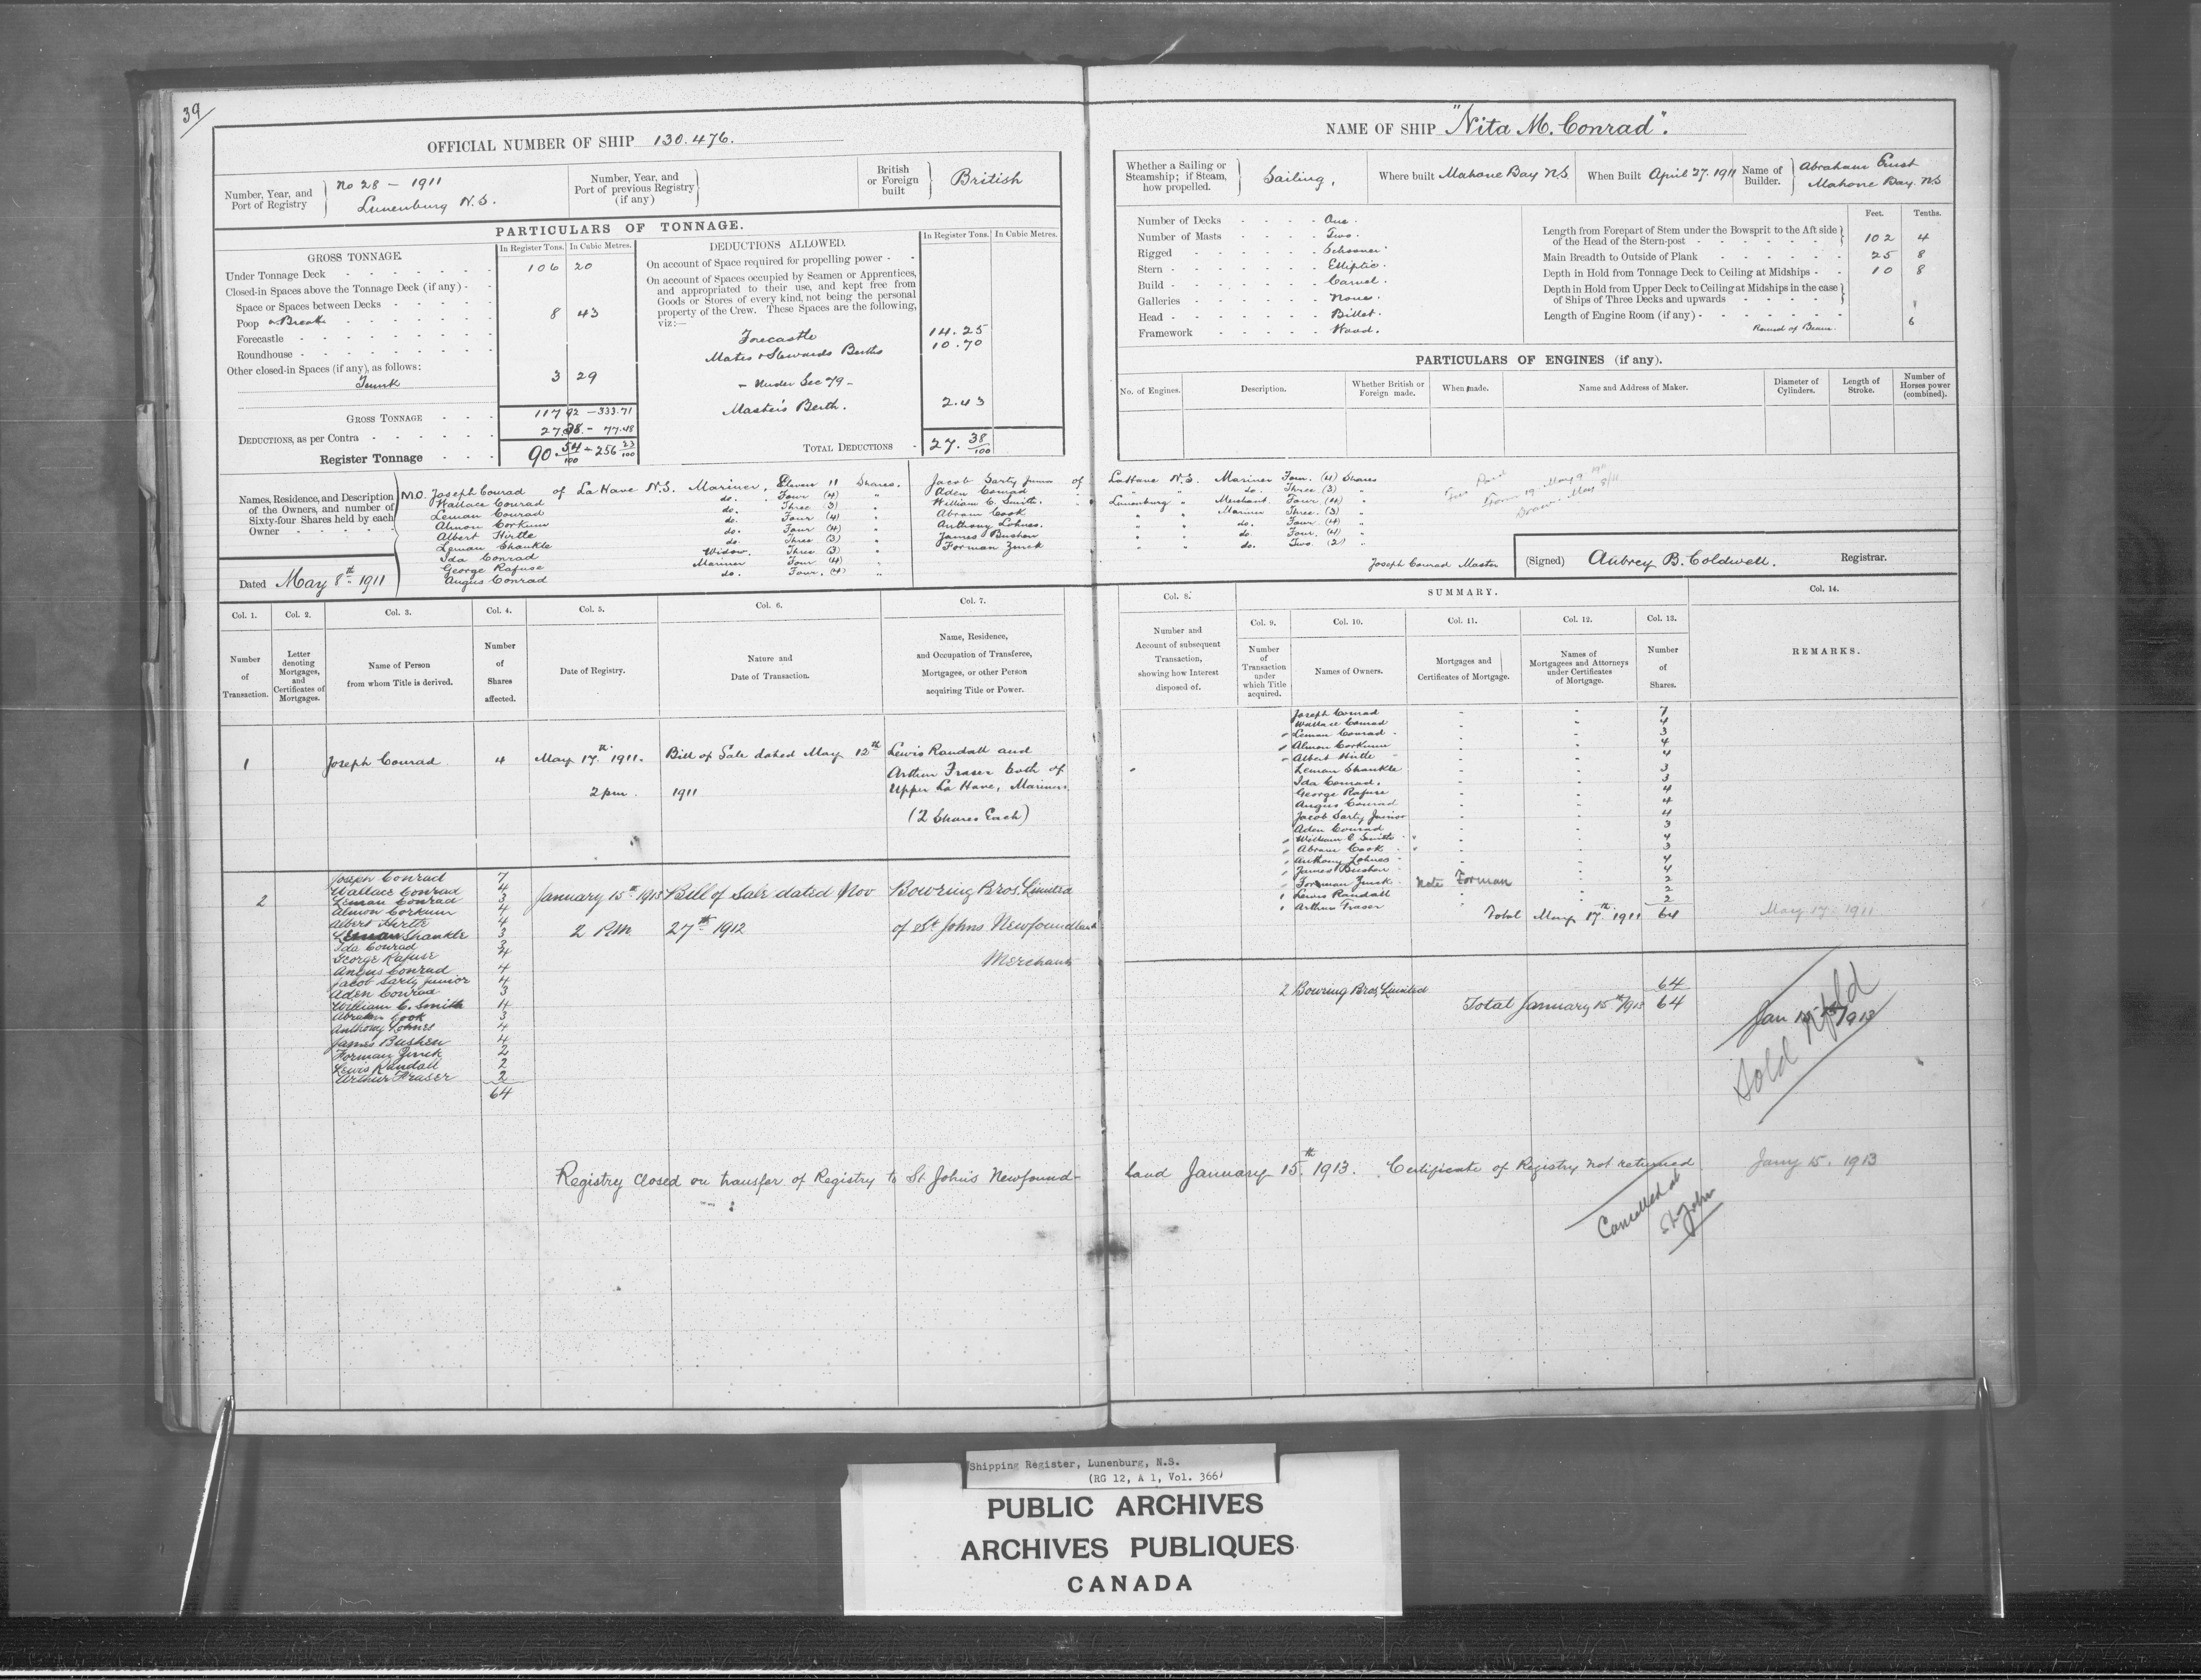 39
OFFICIAL NUMBER OF SHIP 130.476.
Number, Year, and Port of Registry } No 28 – 1911 Lunenburg N.S.
Number, Year, and Port of previous Registry (if any) }
British or Foreign built } British
PARTICULARS OF TONNAGE.
GROSS TONNAGE.
In Register Tons. In Cubic Metres.
Under Tonnage Deck 106 20
Closed-in Spaces above the Tonnage Deck (if any) -
Space or Spaces between Decks
Poop or Break 8 43
Forecastle
Roundhouse
Other closed-in Spaces (if any), as follows:
Trunk 3 29
GROSS TONNAGE 117 92 – 333.71
DEDUCTIONS, as per Contra 27.38 – 77.48
Register Tonnage 90 54/100 – 256 23/100
DEDUCTIONS ALLOWED.
In Register Tons. In Cubic Metres.
On account of Space required for propelling power
On account of Spaces occupied by Seamen or Apprentices,
and appropriated to their use, and kept free from
Goods or Stores of every kind, not being the personal
property of the Crew. These Spaces are the following,
viz:—
Forecastle 14.25
Mates & Stewards Berths 10.70
– Under Sec 79 –
Master's Berth. 2.43
TOTAL DEDUCTIONS 27. 38/100
Names, Residence, and Description
of the Owners, and number of
Sixty-four Shares held by each
Owner
M.O. Joseph Conrad of LaHave N.S. Mariner, Eleven 11 Shares.
Wallace Conrad do. Four (4) "
Leman Conrad do. Three (3) "
Almon Corkum do. Four (4) "
Albert Hirtle do. Four (4) "
Leman Shankle do. Three (3) "
Ida Conrad Widow. Three (3) "
George Rafuse Mariner Four (4) "
Angus Conrad do. Four. (4) "
Jacob Sarty Junior of LaHave N.S. Mariner Four. (4) Shares
Aden Conrad " " " do. Three (3) "
William C. Smith. " Lunenburg " Merchant. Four. (4) "
Abram Cook " " Mariner Three. (3) "
Anthony Lohnes. " " do. Four. (4) "
James Bushen " " do. Four. (4) "
Forman Zinck " " do. Two. (2) "
Dated May 8th 1911
NAME OF SHIP "Nita M. Conrad".
Whether a Sailing or Steamship; if Steam, how propelled. } Sailing,
Where built Mahone Bay N.S.
When Built April 27. 1911
Name of Builder. } Abraham Ernst Mahone Bay. N.S
Number of Decks One.
Number of Masts Two.
Rigged Schooner.
Stern Elliptic.
Build Carvel.
Galleries None.
Head Billet.
Framework Wood.
Feet. Tenths.
Length from Forepart of Stem under the Bowsprit to the Aft side
of the Head of the Stern-post 102 4
Main Breadth to Outside of Plank 25 8
Depth in Hold from Tonnage Deck to Ceiling at Midships 10 8
Depth in Hold from Upper Deck to Ceiling at Midships in the case
of Ships of Three Decks and upwards
Length of Engine Room (if any)
Round of Beam. 6
PARTICULARS OF ENGINES (if any).
No. of Engines. Description. Whether British or Foreign made. When made. Name and Address of Maker. Diameter of Cylinders. Length of Stroke. Number of Horses power (combined).
Fees Paid
Form 19. May 9 1911
May 8/11
Joseph Conrad Master
(Signed) Aubrey B. Coldwell. Registrar.
Col. 1. Col. 2. Col. 3. Col. 4. Col. 5. Col. 6. Col. 7. Col. 8. SUMMARY. Col. 14.
Col. 9. Col. 10. Col. 11. Col. 12. Col. 13.
Number of Transaction.
Letter denoting Mortgages, and Certificates of Mortgages.
Name of Person from whom Title is derived.
Number of Shares affected.
Date of Registry.
Nature and Date of Transaction.
Name, Residence, and Occupation of Transferee, Mortgages, or other Person acquiring Title or Power.
Number and Account of subsequent Transaction, showing how Interest disposed of.
Number of Transaction under which Title acquired.
Names of Owners.
Mortgages and Certificates of Mortgage.
Names of Mortgagees and Attorneys under Certificates of Mortgage.
Number of Shares.
REMARKS.
1 Joseph Conrad 4 May 17th 1911. Bill of Sale dated May 12th Lewis Randall and
Arthur Fraser both of
2 pm. 1911 Upper La Have, Mariners.
(2 Shares Each)
Joseph Conrad 7
Wallace Conrad 4
Leman Conrad 3
Almon Corkum 4
Albert Hirtle 4
Leman Shankle 3
Ida Conrad 3
George Rafuse 4
Angus Conrad 4
Jacob Sarty Junior 4
Aden Conrad 3
William C Smith 4
Abram Cook 3
Anthony Lohnes 4
James Bushen 4
Forman Zinck Note Forman 2
1 Lewis Randall 2
1 Arthur Fraser 2
Total May 17th 1911 64 May 17th 1911
2
Joseph Conrad 7
Wallace Conrad 4
Leman Conrad 3
Almon Corkum 4
Albert Hirtle 4
Leman Shankle 3
Ida Conrad 3
George Rafuse 4
Angus Conrad 4
Jacob Sarty Junior 4
Aden Conrad 3
William C. Smith 4
Abram Cook 3
Anthony Lohnes 4
James Bushen 4
Forman Zinck 2
Lewis Randall 2
Arthur Fraser 2
64
January 15th 1913 Bill of Sale dated Nov Bowring Bros. Limited
2 P.M 27th 1912 of St Johns Newfoundland
Merchants
2 Bowring Bros, Limited 64
Total January 15th 1913 64
Jan 15th 1913
Sold Nfld
Registry closed on transfer of Registry to St. John's Newfound-
land January 15th 1913. Certificate of Registry not returned Jany 15. 1913
Cancelled at
St. John
Shipping Register, Lunenburg, N.S.
(RG 12, A 1, Vol. 366)
PUBLIC ARCHIVES
ARCHIVES PUBLIQUES
CANADA